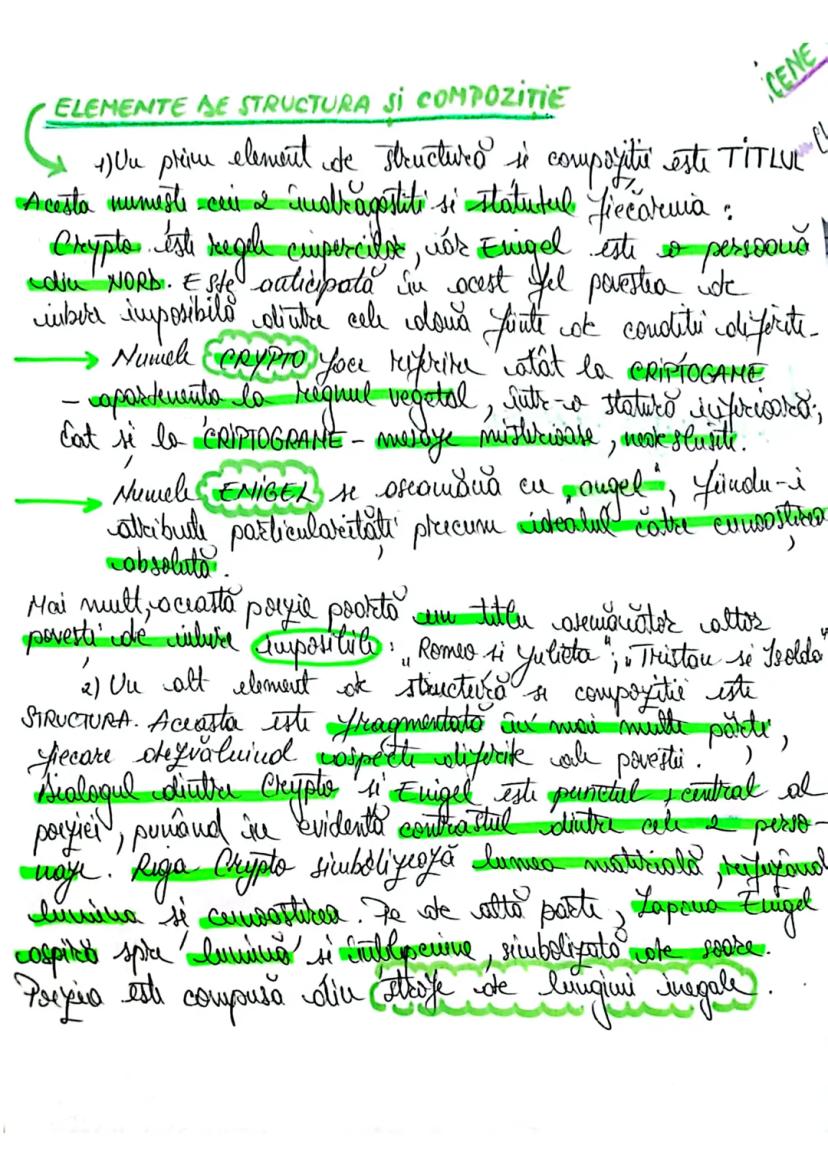 SCENE
ELEMENTE DE STRUCTURA ȘI COMPOZITIE
1) Un prim element de structură și compoziție este TITLUL
Acesta numește cei 2 îndrăgostiți și statutul fiecăruia :
Crypto este regele ciupercilor, iar Enigel este o persoană
din NORD. Este anticipată în acest fel povestea de
iubire imposibilă dintre cele două ființe de conditii diferite.
Numele CRYPTO face referire atât la CRIPTOGAME
- apartenenta la regnul vegetal, într-o statură inferioară;
Cat și la CRIPTOGRAME - mesaje misterioase, neaslusite.
Numele ENIGEL se aseamănă cu „angel", fiindu-i
atribuite particularități precum idealul către cunoașterea
absolută.
Mai mult, această poezie poartă un titlu asemănător altor
povești de iubire imposibile : „Romeo si Julieta"; „Tristan se Isolda"
2) Un alt element de structură si compoziție este
STRUCTURA. Aceasta este fragmentată în mai multe părți,
fiecare dezvăluind aspecte diferite ale poveștii.
Dialogul dintre Crypto si Enigel este punctul central al
poeziei, punând în evidentă contrastul dintre cele 2 perso-
naje. Riga Crypto simbolizează lumea materială, refuzând
lumina si cunoasterea. Pe de altă parte, Lapona Enigel
aspiră spre lumină si înțelepciune, simbolizată de soare.
Poezia este compusă din strofe de lungimi inegale.